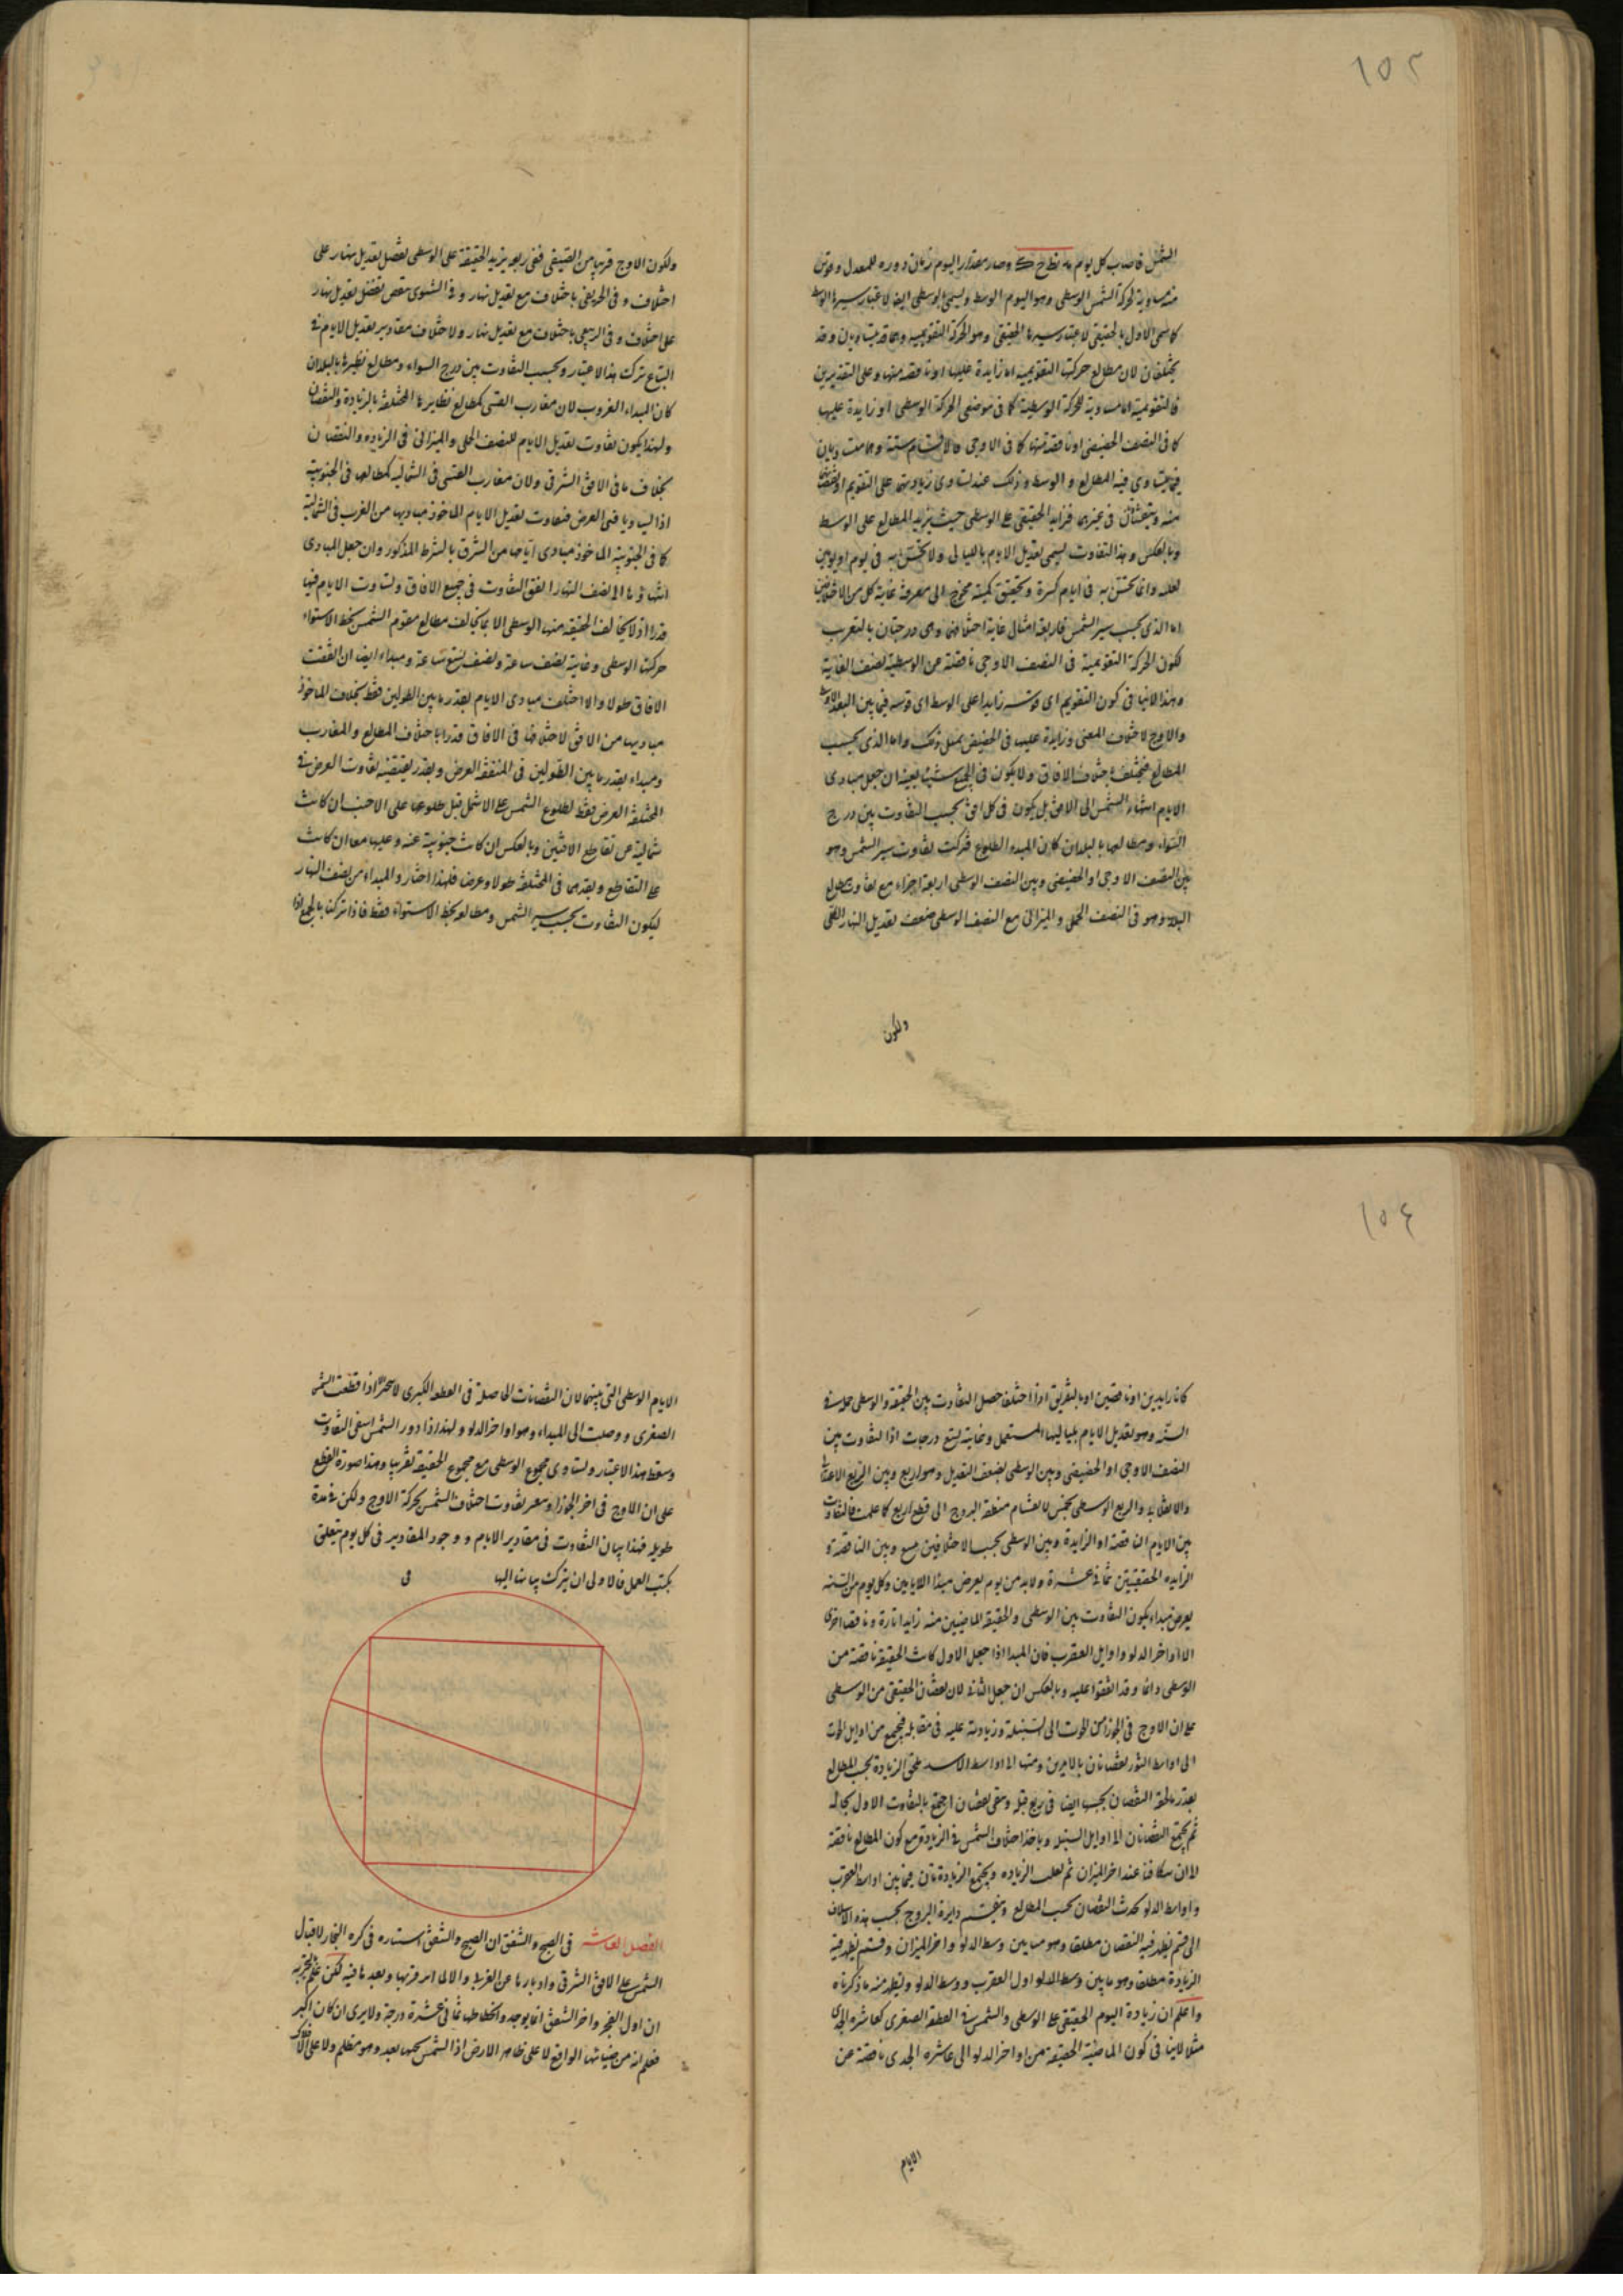 ١٥٢
الشمس فاصاب كل يوم نط ح ك وصار مقدار اليوم زمان دوره للمعدل وقوس
منه مساوية لحركة الشمس الوسطى وهو اليوم الوسط ويسمى الوسطى ايضا لاعتبار سيرها الوسط
كما سمى الاول بالحقيقى لاعتبار سيرها الحقيقى وهو الحركة التقويمية وهما قد يتساويان وقد
يختلفان لان مطالع حركتها التقويمية اما زايدة عليها او ناقصة منها وعلى التقديرين
فالتقويمية اما مساوية للحركة الوسطية كما فى موضعى الحركة الوسطى او زايدة عليها
كما فى النصف الحضيضى او ناقصة منها كما فى الاوجى فالاقسام ستة وهما متساويان
فيما يتساوى فيه المطالع والوسط وذلك عند تساوى زيادتها على التقويم او نقصانها
منه ويتفاوتان فى غيرهما فزايد الحقيقى على الوسطى حيث يزيد المطالع على الوسط
وبالعكس وهذا التفاوت يسمى تعديل الايام بلياليها ولا يحس به فى يوم او يومين
لقلته وانما يحس به فى ايام كثيرة وتحقيق كميته محوج الى معرفة غاية كل من الاختلافين
اما الذى بحسب سير الشمس فاربعة امثال غاية اختلافها وهى درجتان بالتقريب
لكون الحركة التقويمية فى النصف الاوجى ناقصة عن الوسطية بضعف الغاية
وهذا لاينافى كون التقويم اى قوسه زايدا على الوسط اى قوسه فيما بين البعد الاوسط
والاوج لاختلاف المعنى وزايدة عليها فى الحضيض بمثل ذلك واما الذى بحسب
المطالع فيختلف باختلاف الافاق ولا يكون فى الجميع شيئا بعينه ان جعل مبادى
الايام انتهاء الشمس الى الافق بل يكون فى كل افق بحسب التفاوت بين درج
السواء ومطالعها بالبلدان كان المبدء الطلوع فتركب تفاوت سير الشمس وهو
بين النصف الاوجى او الحضيضى وبين النصف الوسطى اربعة اجزاء مع تفاوت مطالع
البلد وهو فى النصف الحملى والميزانى مع النصف الوسطى ضعف تعديل النهار الكلى
ولكون
ولكون الاوج قريبا من الصيفى ففى ربعه يزيد الحقيقة على الوسطى بفضل تعديل نهار على
اختلاف وفى الخريفى باختلاف مع تعديل نهار وفى الشتوى ينقص بفضل تعديل نهار
على اختلاف وفى الربيعى باختلاف مع تعديل نهار ولاختلاف مقادير تعديل الايام فى
البقاع ترك هذا الاعتبار وبحسب التفاوت بين درج السواء ومطالع نظيرها بالبلدان
كان المبداء الغروب لان مغارب القسى كمطالع نظايرها المختلفة بالزيادة والنقصان
ولهذا يكون تفاوت تعديل الايام للنصف الحملى والميزانى فى الزيادة والنقصان
بخلاف ما فى الافق الشرقى ولان مغارب القسى فى الشمالية كمطالعها فى الجنوبية
اذا تساويا فى العرض فتفاوت تعديل الايام الماخوذ مباديها من الغرب فى الشمالية
كما فى الجنوبية الماخوذ مبادى ايامها من الشرق بالشرط المذكور وان جعل المبادى
انتهاؤها الى نصف النهار اتفق التفاوت فى جميع الافاق وتساوت الايام فيها
قدرا اذ لا يخالف الحقيقة منها الوسطى الا بما يخالف مطالع مقوم الشمس بخط الاستواء
حركتها الوسطى وغايته نصف ساعة ونصف تسع ساعة ومبداء ايضا ان اتفقت
الافاق طولا والا اختلفت مبادى الايام بقدر ما بين الطولين فقط بخلاف الماخوذ
مباديها من الافق لاختلافها فى الافاق قدرا باختلاف المطالع والمغارب
ومبداء بقدر ما بين الطولين فى المتفقة العرض وبقدر يقتضيه تفاوت العرض فى
المختلفة العرض فقط لطلوع الشمس على الاشمل قبل طلوعها على الاجنب ان كانت
شمالية عن تقاطع الافقين وبالعكس ان كانت جنوبية عنه وعليهما معا ان كانت
على التقاطع وبقدرهما فى المختلفة طولا وعرضا فلهذا اختار والمبداء من نصف النهار
ليكون التفاوت بحسب سير الشمس ومطالع بخط الاستواء فقط فاذا تركنا بالجمع اذا
١٥٤
كانا زايدين او ناقصين او بالتفريق اذا اختلفا حصل التفاوت بين الحقيقة والوسطى جملة فى
السنة وهو تعديل الايام بلياليها المستعمل وغايته تسع درجات اذ التفاوت بين
النصف الاوجى او الحضيضى وبين الوسطى بضعف التعديل وهو اربع وبين الربع الاعتدالى
والانقلابى والربع الوسطى بخمس لانقسام منطقة البروج الى قطع اربع كما علمت فالتفاوت
بين الايام الناقصة او الزايدة وبين الوسطى بحسب الاختلافين تسع وبين الناقصة و
الزايدة الحقيقيتين ثمانى عشرة ولابد من يوم يفرض مبداء للايامين وكل يوم من السنة
يفرض مبداء يكون التفاوت بين الوسطى والحقيقة الماضيين منه زايدا تارة وناقصا اخرى
الا اواخر الدلو واوايل العقرب فان المبدا اذا جعل الاول كانت الحقيقة ناقصة من
الوسطى دائما وقد اتفقوا عليه وبالعكس ان جعل الثانى لان نقصان الحقيقى من الوسطى
على ان الاوج فى الجوزا من الحوت الى السنبلة وزيادته عليه فى مقابله فيجمع من اوايل الحوت
الى اواسط الثور نقصانان بالامرين ومنها الى اواسط الاسد يلحق الزيادة بحسب المطالع
بقدر ما لحقه النقصان بحسبه ايضا فى ربع قبله وبقى نقصان اجتمع بالتفاوت الاول بحاله
ثم يجتمع النقصانان الى اوايل السنبلة وياخذ اختلاف الشمس فى الزيادة مع كون المطالع ناقصة
الى ان يتكافئا عند اخر الميزان ثم يغلب الزيادة ويجتمع الزيادتان فيما بين اواسط العقرب
واواسط الدلو يحدث النقصان بحسب المطالع وينقسم دايرة البروج بحسب هذه الاختلاف
الى قسم يظهر فيه النقصان مطلقا وهو ما بين وسط الدلو واخر الميزان وقسم يظهر فيه
الزيادة مطلقا وهو ما بين وسط الدلو اول العقرب ووسط الدلو ويظهر منه ما ذكرناه
واعلم ان زيادة اليوم الحقيقى على الوسطى والشمس فى القطعة الصغرى كعاشرة الجدى
مثلا لاينافى كون الماضية الحقيقة من اواخر الدلو الى عاشرة الجدى ناقصة عن
الايام
الايام الوسطى التى بينهما لان النقصانات الحاصلة فى القطعة الكبرى لاسحر اذا قطعت الشمس
الصغرى ووصلت الى المبداء وهو اواخر الدلو ولهذا اذا دور الشمس انتفى التفاوت
وسقط هذا الاعتبار وتساوى مجموع الوسطى مع مجموع الحقيقة تقريبا وهذا صورة القطع
على ان الاوج فى اخر الجوزا وتغير تفاوت اختلاف الشمس بحركة الاوج ولكن فى مدة
طويلة فهذا بيان التفاوت فى مقادير الايام ووجود المقادير فى كل يوم يتعلق
بكتب العمل فالاولى ان يترك بيانه اليها
فى
الفصل العاشر فى الصبح والشفق ان الصبح والشفق استناره فى كره البخار لاقبال
الشمس على الافق الشرقى وادبارها عن الغربى والالما امر قربها وبعد ما فيه لكن علم بالتجربة
ان اول الفجر واخر الشفق انما يوجد وانحطاطها ثمانى عشرة درجة ولايرى ان كان اكبر
فعلم انه من ضيائها الواقع لا على ظاهر الارض اذ الشمس تحتها بعد وهو مظلم ولا على الافلاك